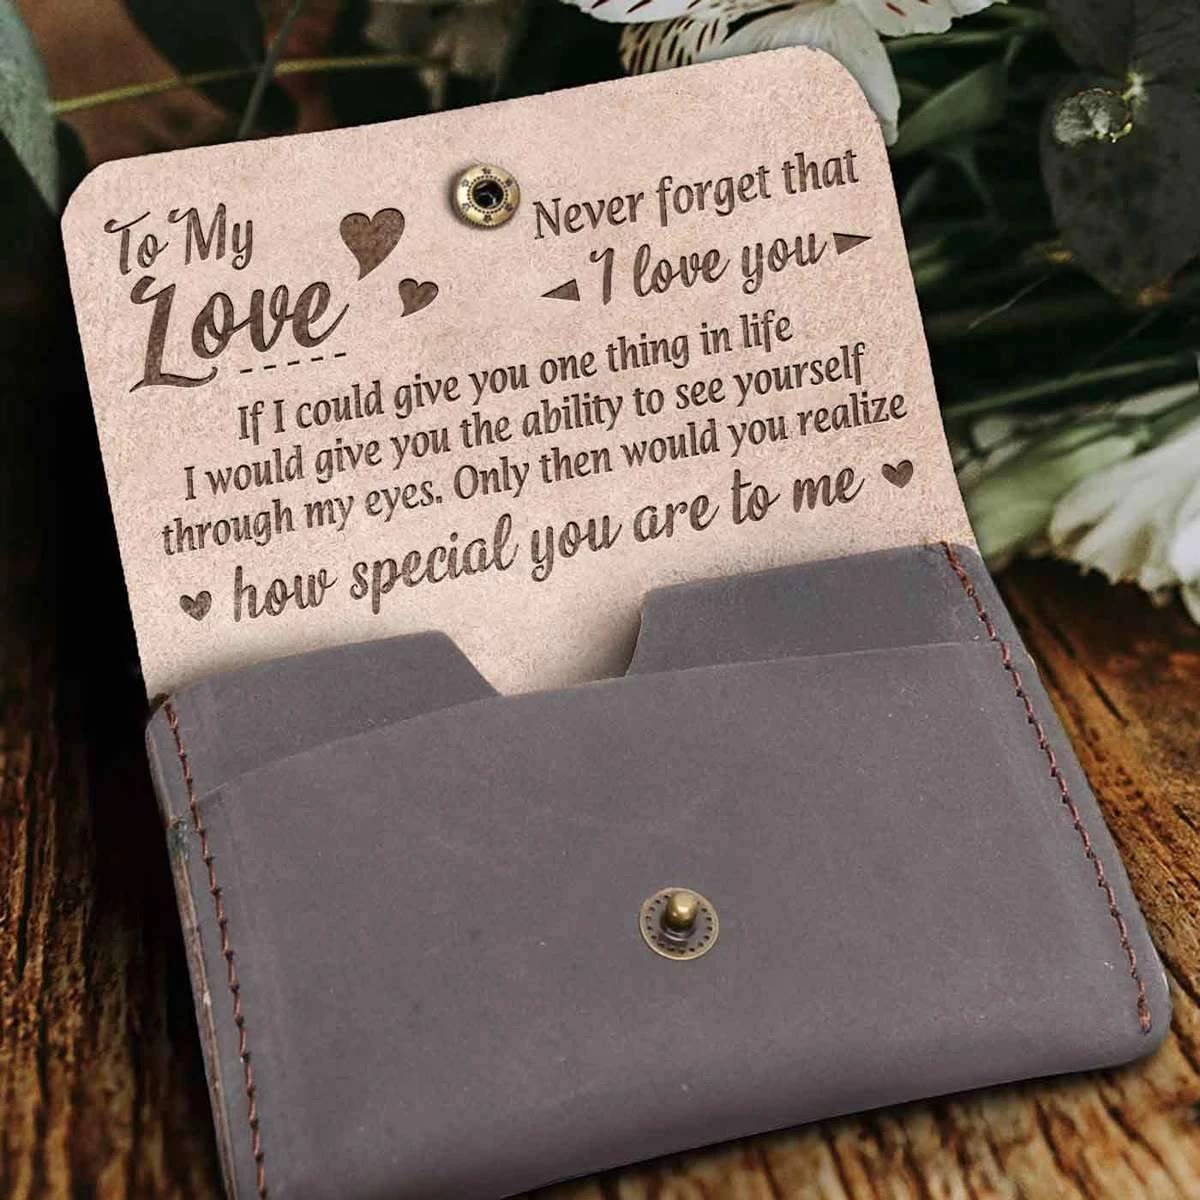 To My
Love
Never forget that
I love you
If I could give you one thing in life
I would give you the ability to see yourself
through my eyes. Only then would you realize
how special you are to me